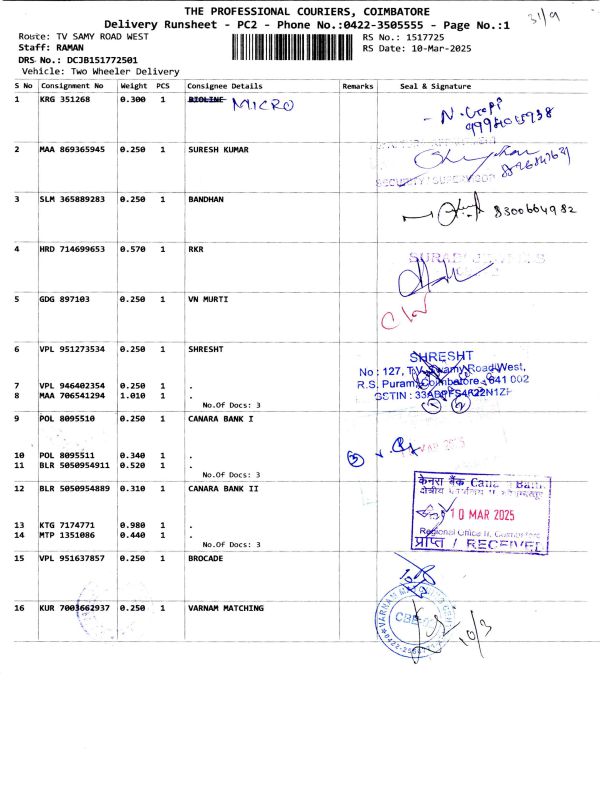 THE PROFESSIONAL COURIERS, COIMBATORE
31/9
Delivery Runsheet - PC2 - Phone No.:0422-3505555 - Page No.:1
Route: TV SAMY ROAD WEST
RS No.: 1517725
Staff: RAMAN
RS Date: 10-Mar-2025
DRS No.: DCJB151772501
Vehicle: Two Wheeler Delivery
S No Consignment No Weight PCS Consignee Details Remarks Seal & Signature
1 KRG 351268 0.300 1 BIOLINE MICRO
2 MAA 869365945 0.250 1 SURESH KUMAR
SECURITY SUPERVISOR
3 SLM 365889283 0.250 1 BANDHAN 8300664982
4 HRD 714699653 0.570 1 RKR
5 GDG 897103 0.250 1 VN MURTI
6 VPL 951273534 0.250 1 SHRESHT
SHRESHT
No : 127, T.V. Swamy Road West,
R.S. Puram, Coimbatore - 641 002
7 VPL 946402354 0.250 1 .
8 MAA 706541294 1.010 1 .
GSTIN : 33ABPFS4822N1ZF
No.Of Docs: 3
9 POL 8095510 0.250 1 CANARA BANK I
10 POL 8095511 0.340 1 .
11 BLR 5050954911 0.520 1 .
No.Of Docs: 3
12 BLR 5050954889 0.310 1 CANARA BANK II
केनरा बैंक Canara Bank
10 MAR 2025
13 KTG 7174771 0.980 1 .
Regional Office II, Coimbatore
14 MTP 1351086 0.440 1 .
प्राप्त / RECEIVED
No.Of Docs: 3
15 VPL 951637857 0.250 1 BROCADE
16 KUR 7003662937 0.250 1 VARNAM MATCHING
10/3